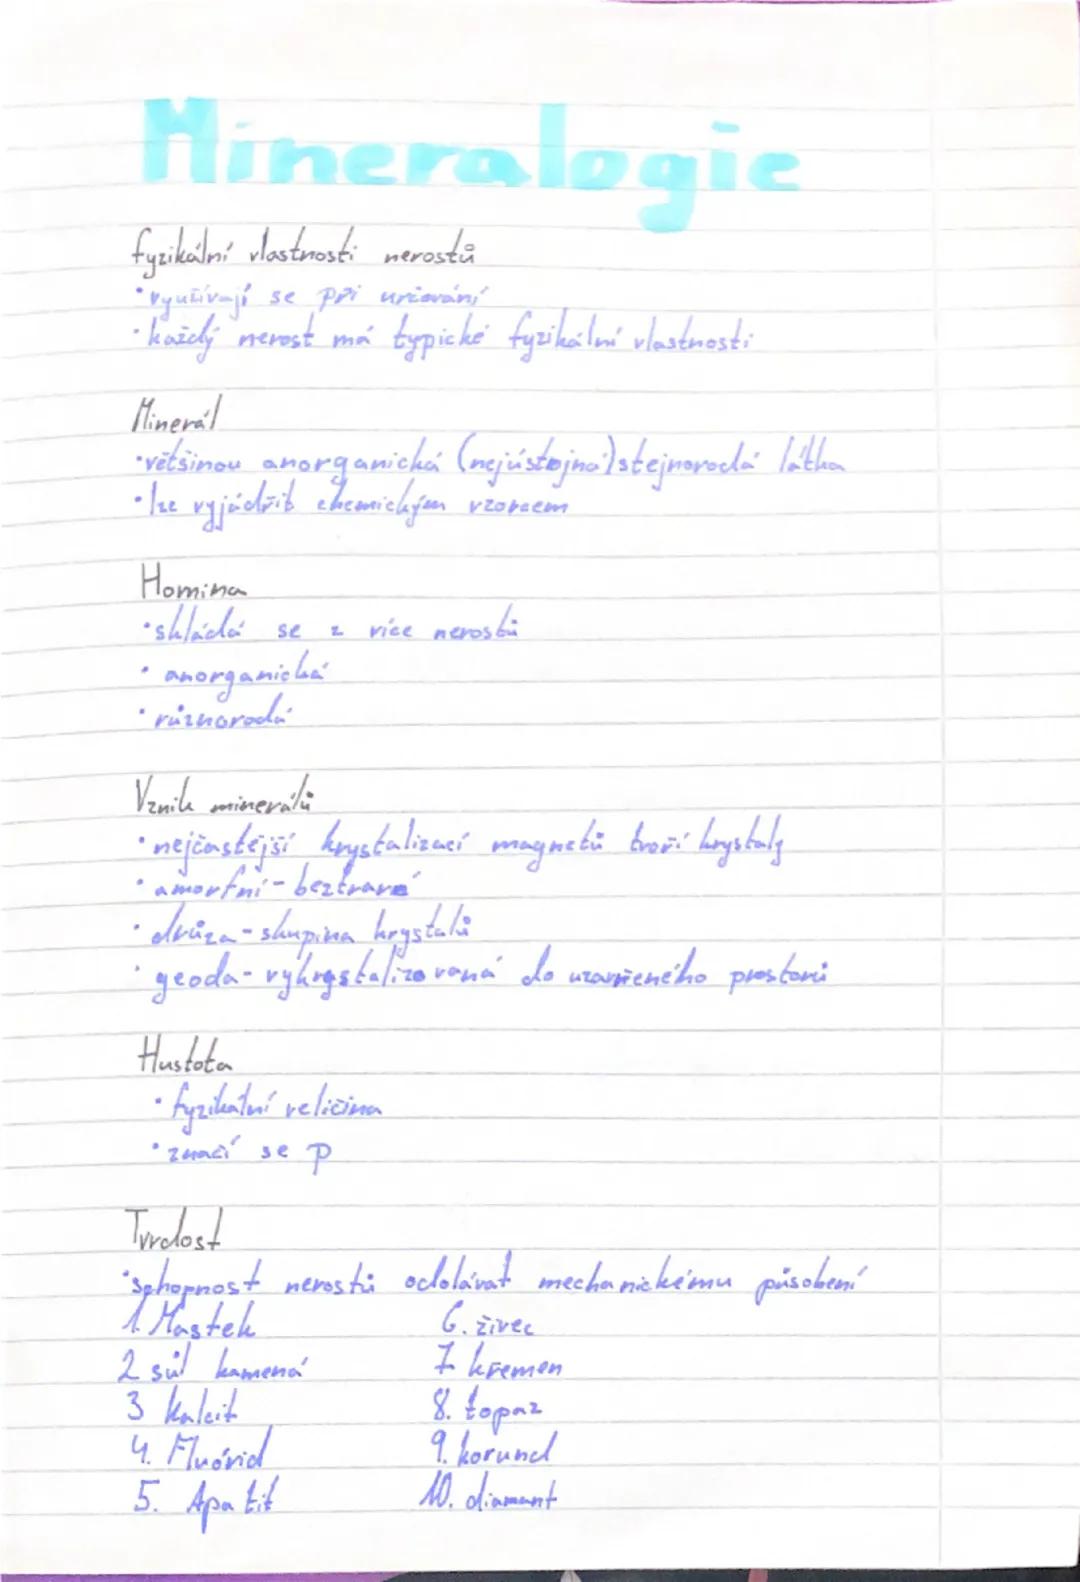 Mineralogie
fyzikální vlastnosti nerostů
•využívají se při určování
•každý nerost má typické fyzikální vlastnosti
Minerál
•většinou anorganická (nejústojná) stejnorodá látka
•lze vyjádřit chemickým vzorcem
Hornina
•skládá se z více nerostů
• anorganická
•různorodá
Vznik minerálů
•nejčastější krystalizací magnetů tvoří krystaly
• amorfní - beztvaré
• drůza - skupina krystalů
• geoda - vykrystalizovaná do uzavřeného prostorů
Hustota
• fyzikální veličina
• značí se p
Tvrdost
•schopnost nerostů odolávat mechanickému působení
1. Mastek 6. živec
2 sůl kamená 7. křemen
3 Kalcit 8. topaz
4. Fluorid 9. korund
5. Apatit 10. diamant